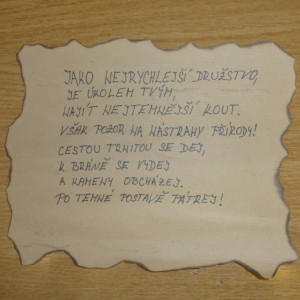 JAKO NEJRYCHLEJŠÍ DRUŽSTVO,
JE ÚKOLEM TVÝM,
NAJÍT NEJTEMNĚJŠÍ KOUT.
VŠAK POZOR NA NÁSTRAHY PŘÍRODY!
CESTOU TRNITOU SE DEJ,
K BRÁNĚ SE VYDEJ
A KAMENY OBCHÁZEJ.
PO TEMNÉ POSTAVĚ PÁTREJ!